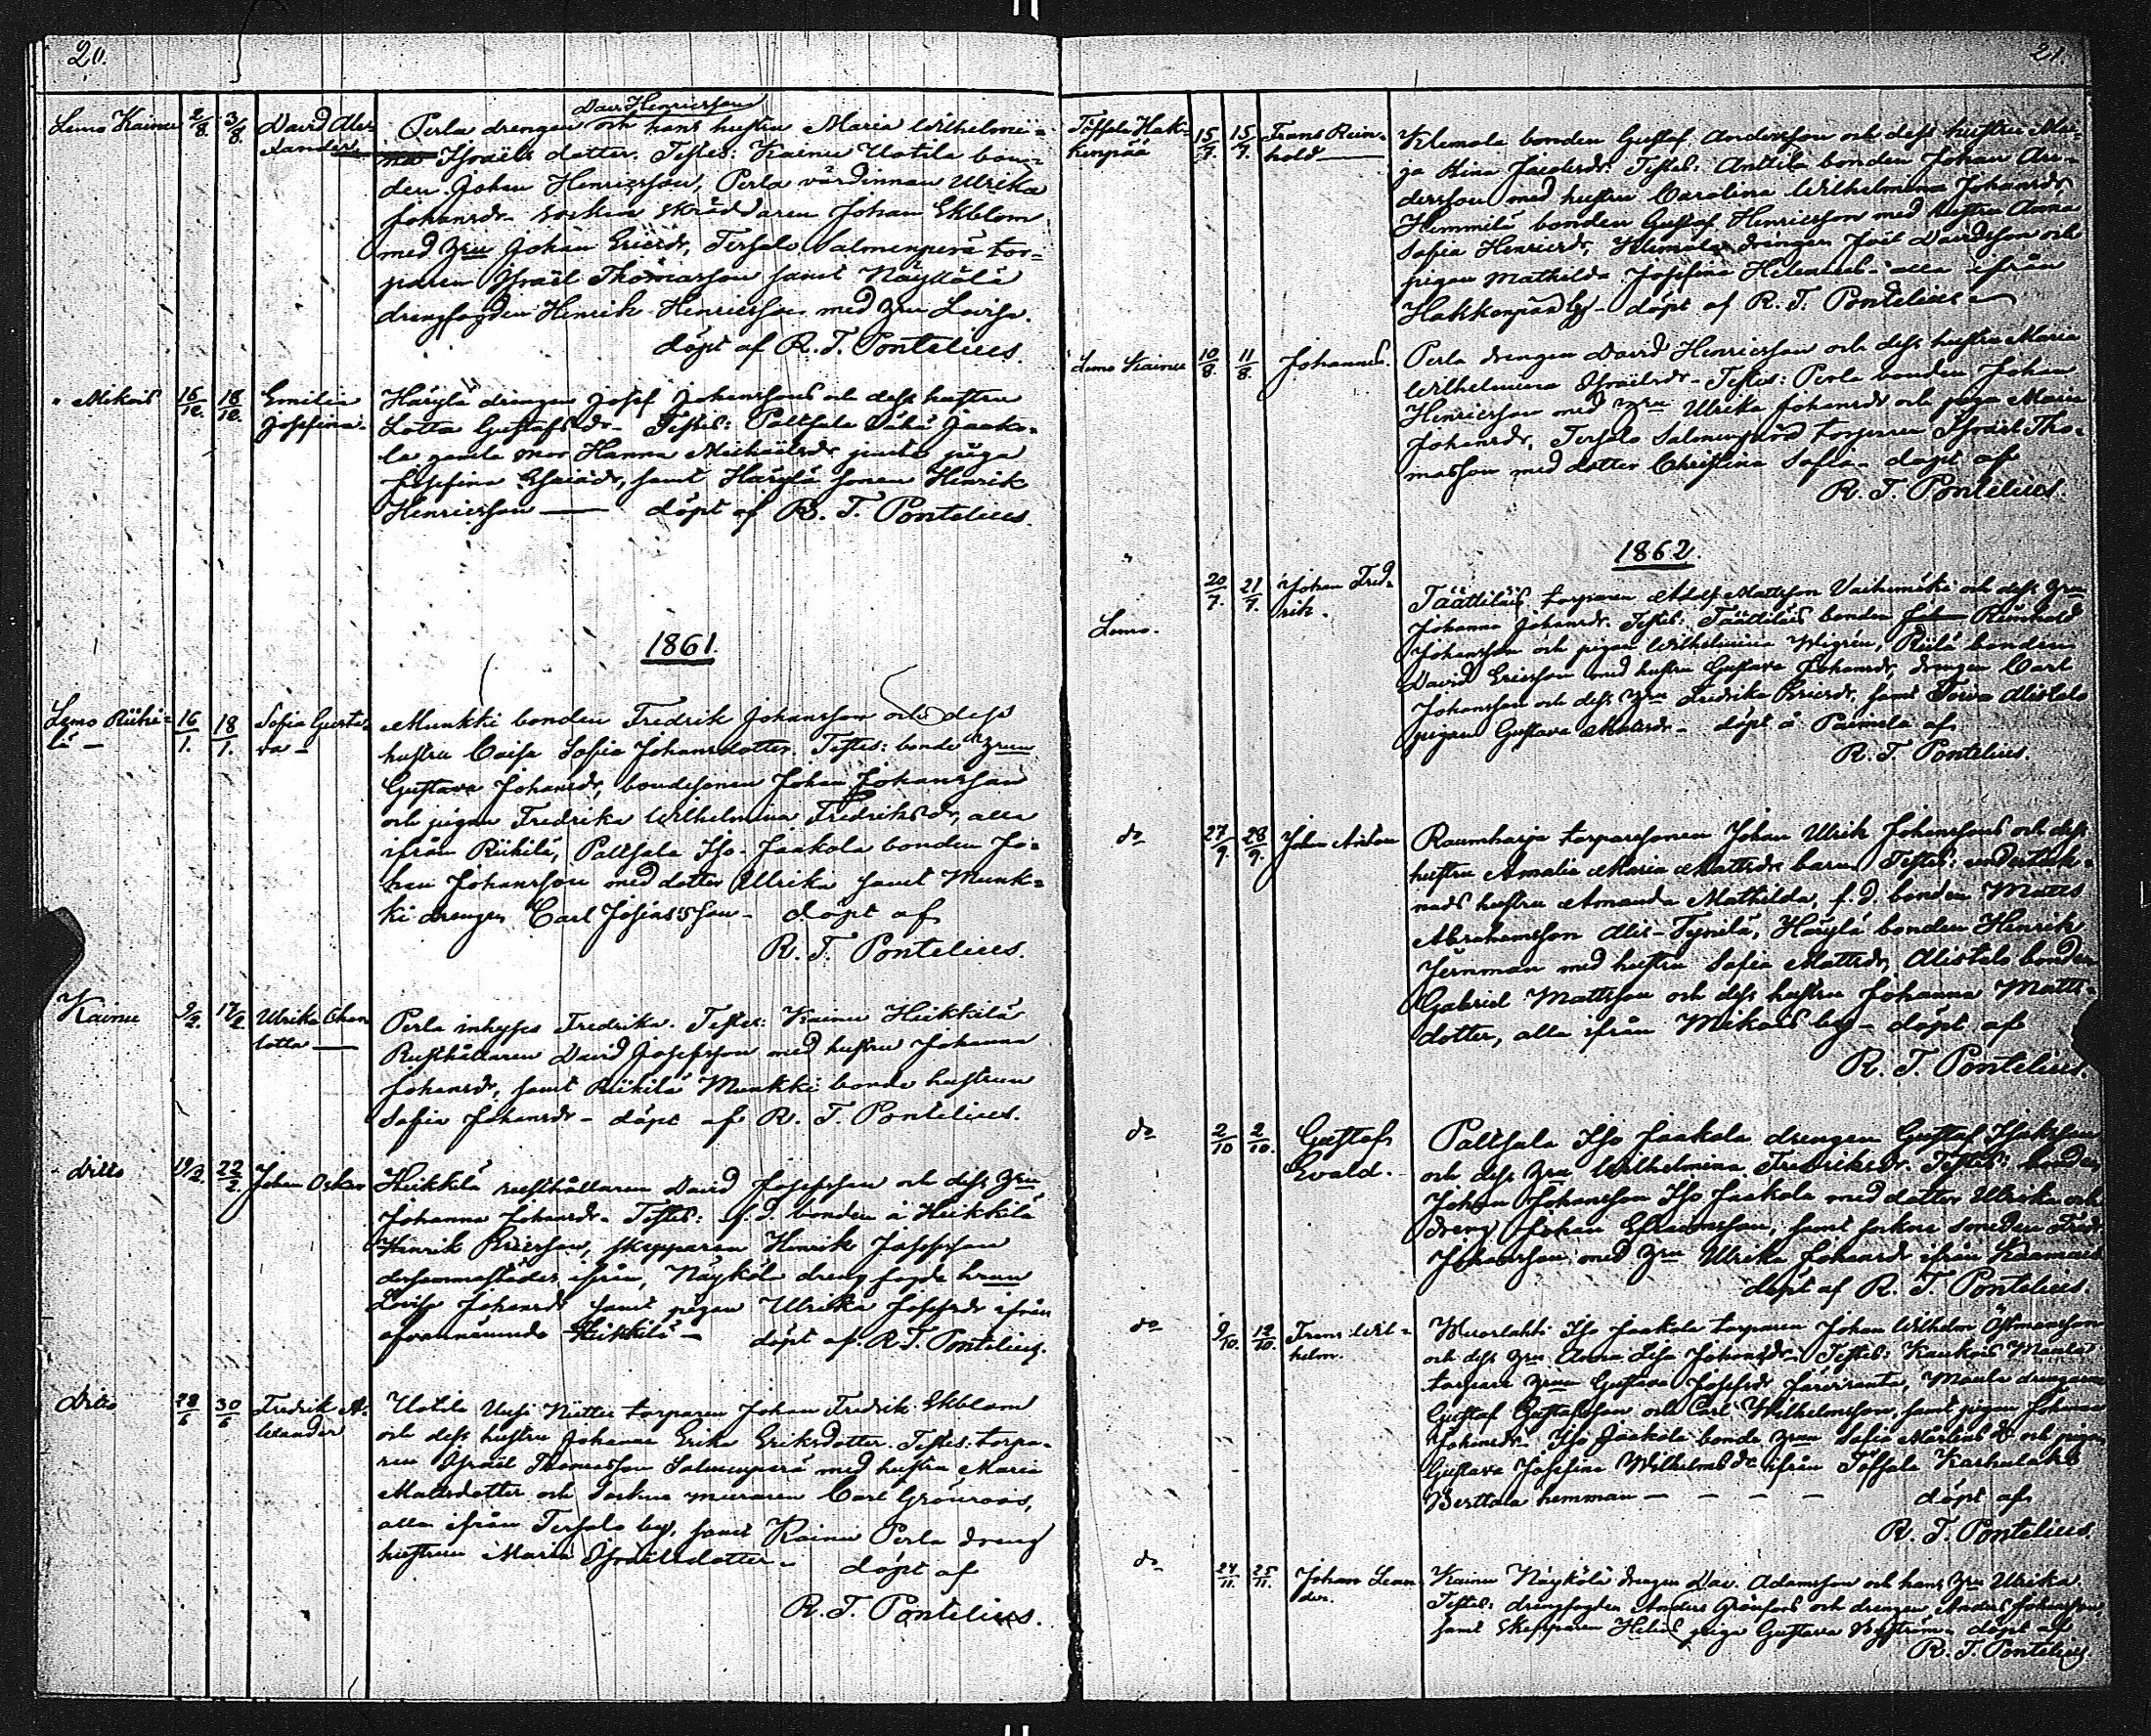 20.
Lemo Kainu 2/8. 3/8. David Alex-
ander
Dav. Henricsson
Perla drengen och hans hustru Maria Wilhelmi-
na Israëls dotter. Testes: Kainu Uotila bon-
den Johan Henricsson, Perla värdinnan Ulrika
Johansdr. Sockne skräddaren Johan Ekblom
med Hru Johan Ericsdr, Tersalo Salmenperä tor-
paren Israël Thomasson samt Näykölä
drengfogden Henrik Henricsson med Hru Lovisa.
döpt af R. T. Pontelius.
" Mikois 16/12. 18/12. Emilia
Josefina
Härylä drengen Josef Johanssons och dess hustru
Lotta Gustafsdr. Testes: Paltsala Vähä Jaako-
la gamla mor Hanna Michaëlsdr jemte piga
Josefina Esaiædr, samt Härylä sonen Henrik
Henricsson — döpt af R. T. Pontelius.
1861.
Lemo Riiki-
lä — 16/1. 18/1. Sofia Gusta-
va —
Munkki bonden Fredrik Johansson och dess
hustru Caisa Sofia Johansdotter. Testes: bonde Hrun
Gustava Johansdr, bondesonen Johan Johansson
och pigan Fredrika Wilhelmina Fredriksdr, alla
ifrån Riikilä, Paltsala Iso-Jaakola bonden Jo-
han Johansson med dotter Ulrika samt Munk-
ki drengen Carl Josiasson — döpt af
R. T. Pontelius.
Kainu 9/2. 17/2 Ulrika Char-
lotta —
Perla inhyses Fredrika. Testes: Kainu Heikkilä
Rusthållaren David Josefsson med hustru Johanna
Johansdr, samt Riikilä Munkki bonde hustrun
Sofia Johansdr — döpt af R. T. Pontelius.
ditto 19/2. 22/2. Johan Oskar
Heikkilä rusthållaren David Josefsson och dess Hru
Johanna Johansdr. Testes: f.d. bonden å Heikkilä
Henrik Ericsson, skepparen Henrik Josefsson
dersammastädes ifrån, Näykölä dreng fogde hrun
Lovisa Johansdr samt pigan Ulrika Josefsdr ifrån
ofvannämnde Heikkilä — döpt af R. T. Pontelius.
Ditto 28/6 30/6 Fredrik A-
lexander
Uotila Uusi Niittu torparen Johan Fredrik Ekblom
och dess hustru Johanna Erika Eriksdotter. Testes: torpa-
ren Israël Thomasson Salmenperä med hustru Maria
Mattsdotter och Sockne muraren Carl Grönroos,
alla ifrån Tersalo by, samt Kainu Perla dreng
hustrun Maria Israelsdotter — döpt af
R. T. Pontelius.
21.
Töfsala Hak-
kenpää 15/7. 15/7. Frans Rein-
hold —
Klemola bonden Gustaf Andersson och dess hustru Ma-
ja Stina Jacobsdr. Testes: Anttila bonden Johan An-
dersson med hustru Carolina Wilhelmina Johansdr
Hemmilä bonden Gustaf Henricsson med hustru Anna
Sofia Henricsdr, Klemola drengen Joël Davidsson och
pigan Mathilda Josefina Helenius — alla ifrån
Hakkenpää by — döpt af R. T. Pontelius
Lemo Kainu 10/8. 11/8. Johannes.
Perla drengen David Henricsson och dess hustru Maria
Wilhelmina Israëlsdr — Testes: Perla bonden Johan
Henricsson med Hru Ulrika Johansdr och piga Maria
Johansdr, Tersalo Salmenperä torparen Israël Tho-
masson med dotter Christina Sofia — döpt af
R. T. Pontelius.
1862.
"
Lemo. 20/7. 21/7. Johan Fred-
rik.
Täättiläis torparen Adolf Mattsson Vaihemäki och dess Hru
Johanna Johansdr. Testes: Täättiläis bonden Reinhold
Johansson och pigan Wilhelmina Wigrén, Riilä bonden
David Ericsson med hustru Gustava Johansdr, drengen Carl
Johansson och dess Hru Fredrika Ericsdr, samt Alistalo
pigan Gustava Mattsdr — döpt å Parmela af
R. T. Pontelius.
do 27/9. 28/9. Johan Anton
Raumharju torparesonen Johan Ulrik Johanssons och dess
hustru Amalia Maria Mattsdr barn. Testes:
hustru Amanda Mathilda, f. d. bonden Matts
Abrahamsson Ali-Tynilä, Härylä bonden Henrik
Jernman med hustru Sofia Mattsdr, Alistalo bonden
Gabriel Mattsson och dess hustru Johanna Matts-
dotter, alla ifrån Mikois by — döpt af
R. T. Pontelius.
do 2/10 2/10. Gustaf
Evald.
Paltsala Iso Jaakola drengen Gustaf Isaksson
och dess Hru Wilhelmina Fredriksdr. Testes: bonden
Johan Johansson Iso Jaakola med dotter Ulrika och
dreng Johan Esaiasson, samt sockne smeden Fredr.
Johansson med Hru Ulrika Johansdr ifrån Kaamanen
döpt af R. T. Pontelius.
do 9/10. 12/10. Frans Wil-
helm.
Muorlahti Iso Jaakola torparen Johan Wilhelm Östmansson
och dess Hru Anna Lisa Johansdr. Testes: Kaukois Maula
torpare Hrun Gustava Josefsdr Järviranta, Maula drengarne
Gustaf Gustafsson och Carl Wilhelmsson, samt pigan Johanna
Johansdr. Iso Jaakola bonde Hrun Sofia Mårtensdr och pigan
Gustava Josefina Wilhelmsdr ifrån Töfsala Karhulaks
Berttala hemman — — — — — döpt af
R. T. Pontelius.
do 24/11. 25/11. Johan Lean-
der.
Kainu Näykölä drengen Dav. Adamsson och hans Hru Ulrika.
Testes: drengfogden Anders Grönfors och drengen Anders Johansson,
samt Skepparen Helins piga Gustava Nyström — döpt af
R. T. Pontelius